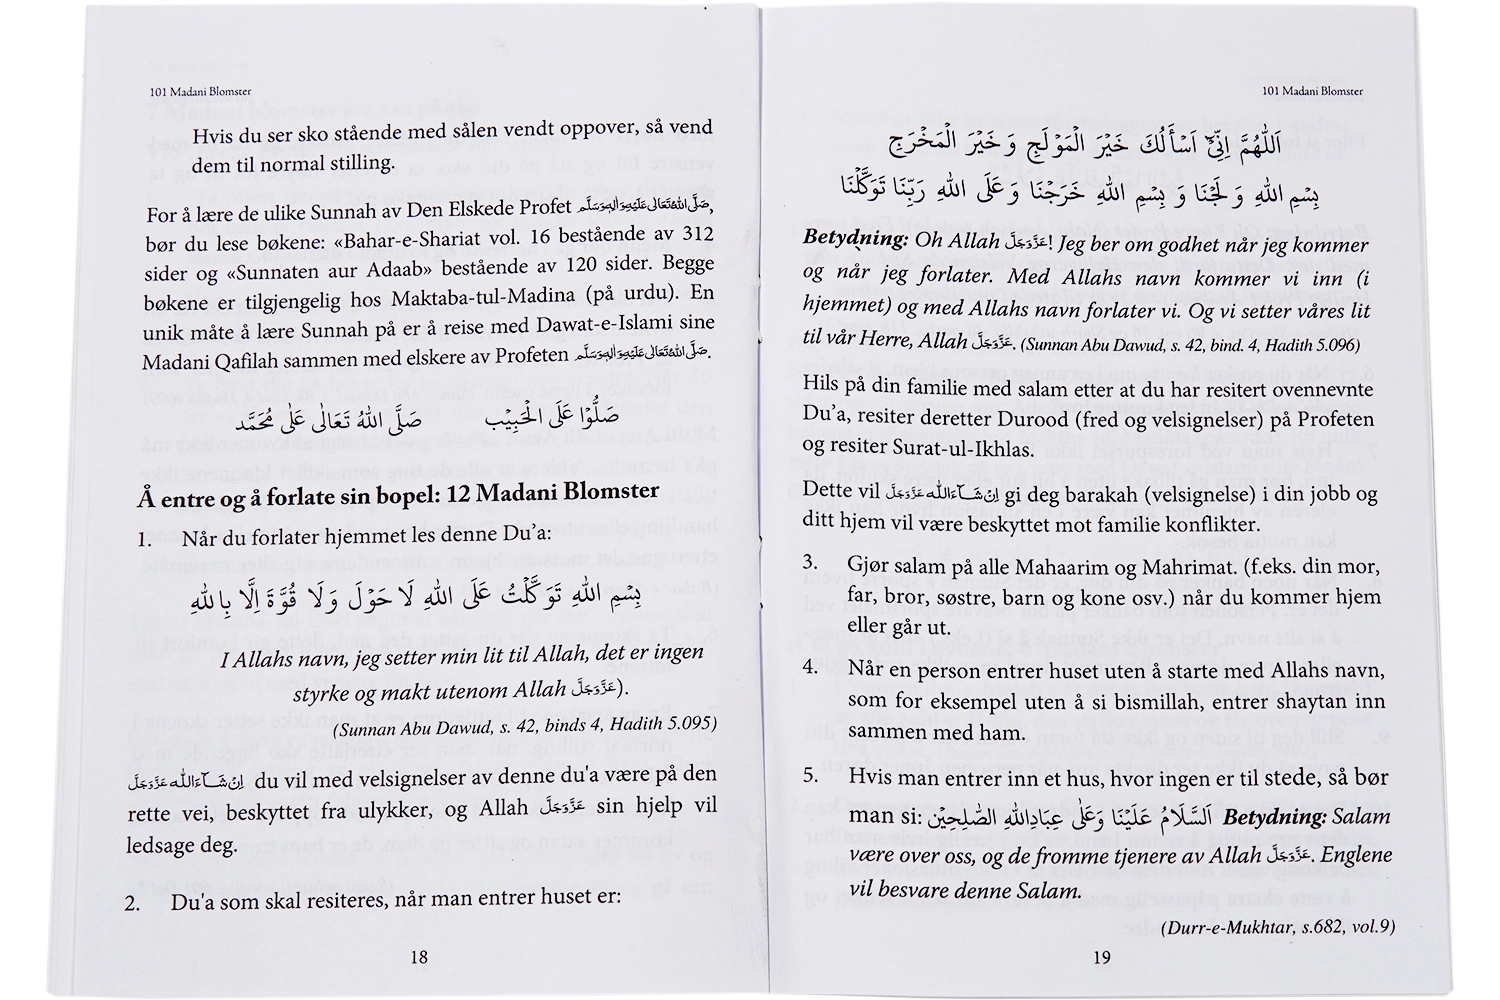 101 Madani Blomster
Hvis du ser sko stående med sålen vendt oppover, så vend
dem til normal stilling.
For å lære de ulike Sunnah av Den Elskede Profet صَلَّى اللهُ تَعَالٰى عَلَيْهِ وَاٰلِهٖ وَسَلَّم,
bør du lese bøkene: «Bahar-e-Shariat vol. 16 bestående av 312
sider og «Sunnaten aur Adaab» bestående av 120 sider. Begge
bøkene er tilgjengelig hos Maktaba-tul-Madina (på urdu). En
unik måte å lære Sunnah på er å reise med Dawat-e-Islami sine
Madani Qafilah sammen med elskere av Profeten صَلَّى اللهُ تَعَالٰى عَلَيْهِ وَاٰلِهٖ وَسَلَّم.
صَلُّوْا عَلَى الْحَبِيْب صَلَّى اللهُ تَعَالٰى عَلٰى مُحَمَّد
Å entre og å forlate sin bopel: 12 Madani Blomster
1. Når du forlater hjemmet les denne Du’a:
بِسْمِ اللهِ تَوَكَّلْتُ عَلَى اللهِ لَا حَوْلَ وَلَا قُوَّةَ اِلَّا بِاللهِ
I Allahs navn, jeg setter min lit til Allah, det er ingen
styrke og makt utenom Allah عَزَّوَجَلَّ).
(Sunnan Abu Dawud, s. 42, binds 4, Hadith 5.095)
اِنْ شَــآءَاللّٰه عَزَّوَجَلَّ du vil med velsignelser av denne du'a være på den
rette vei, beskyttet fra ulykker, og Allah عَزَّوَجَلَّ sin hjelp vil
ledsage deg.
2. Du'a som skal resiteres, når man entrer huset er:
18
101 Madani Blomster
اَللّٰهُمَّ اِنِّيْ اَسْأَلُكَ خَيْرَ الْمَوْلَجِ وَ خَيْرَ الْمَخْرَجِ
بِسْمِ اللهِ وَلَجْنَا وَ بِسْمِ اللهِ خَرَجْنَا وَ عَلَى اللهِ رَبِّنَا تَوَكَّلْنَا
Betydning: Oh Allah عَزَّوَجَلَّ! Jeg ber om godhet når jeg kommer
og når jeg forlater. Med Allahs navn kommer vi inn (i
hjemmet) og med Allahs navn forlater vi. Og vi setter våres lit
til vår Herre, Allah عَزَّوَجَلَّ. (Sunnan Abu Dawud, s. 42, bind. 4, Hadith 5.096)
Hils på din familie med salam etter at du har resitert ovennevnte
Du’a, resiter deretter Durood (fred og velsignelser) på Profeten
og resiter Surat-ul-Ikhlas.
Dette vil اِنْ شَــآءَاللّٰه عَزَّوَجَلَّ gi deg barakah (velsignelse) i din jobb og
ditt hjem vil være beskyttet mot familie konflikter.
3. Gjør salam på alle Mahaarim og Mahrimat. (f.eks. din mor,
far, bror, søstre, barn og kone osv.) når du kommer hjem
eller går ut.
4. Når en person entrer huset uten å starte med Allahs navn,
som for eksempel uten å si bismillah, entrer shaytan inn
sammen med ham.
5. Hvis man entrer inn et hus, hvor ingen er til stede, så bør
man si: اَلسَّلَامُ عَلَيْنَا وَعَلٰى عِبَادِاللهِ الصّٰلِحِيْنَ Betydning: Salam
være over oss, og de fromme tjenere av Allah عَزَّوَجَلَّ. Englene
vil besvare denne Salam.
(Durr-e-Mukhtar, s.682, vol.9)
19